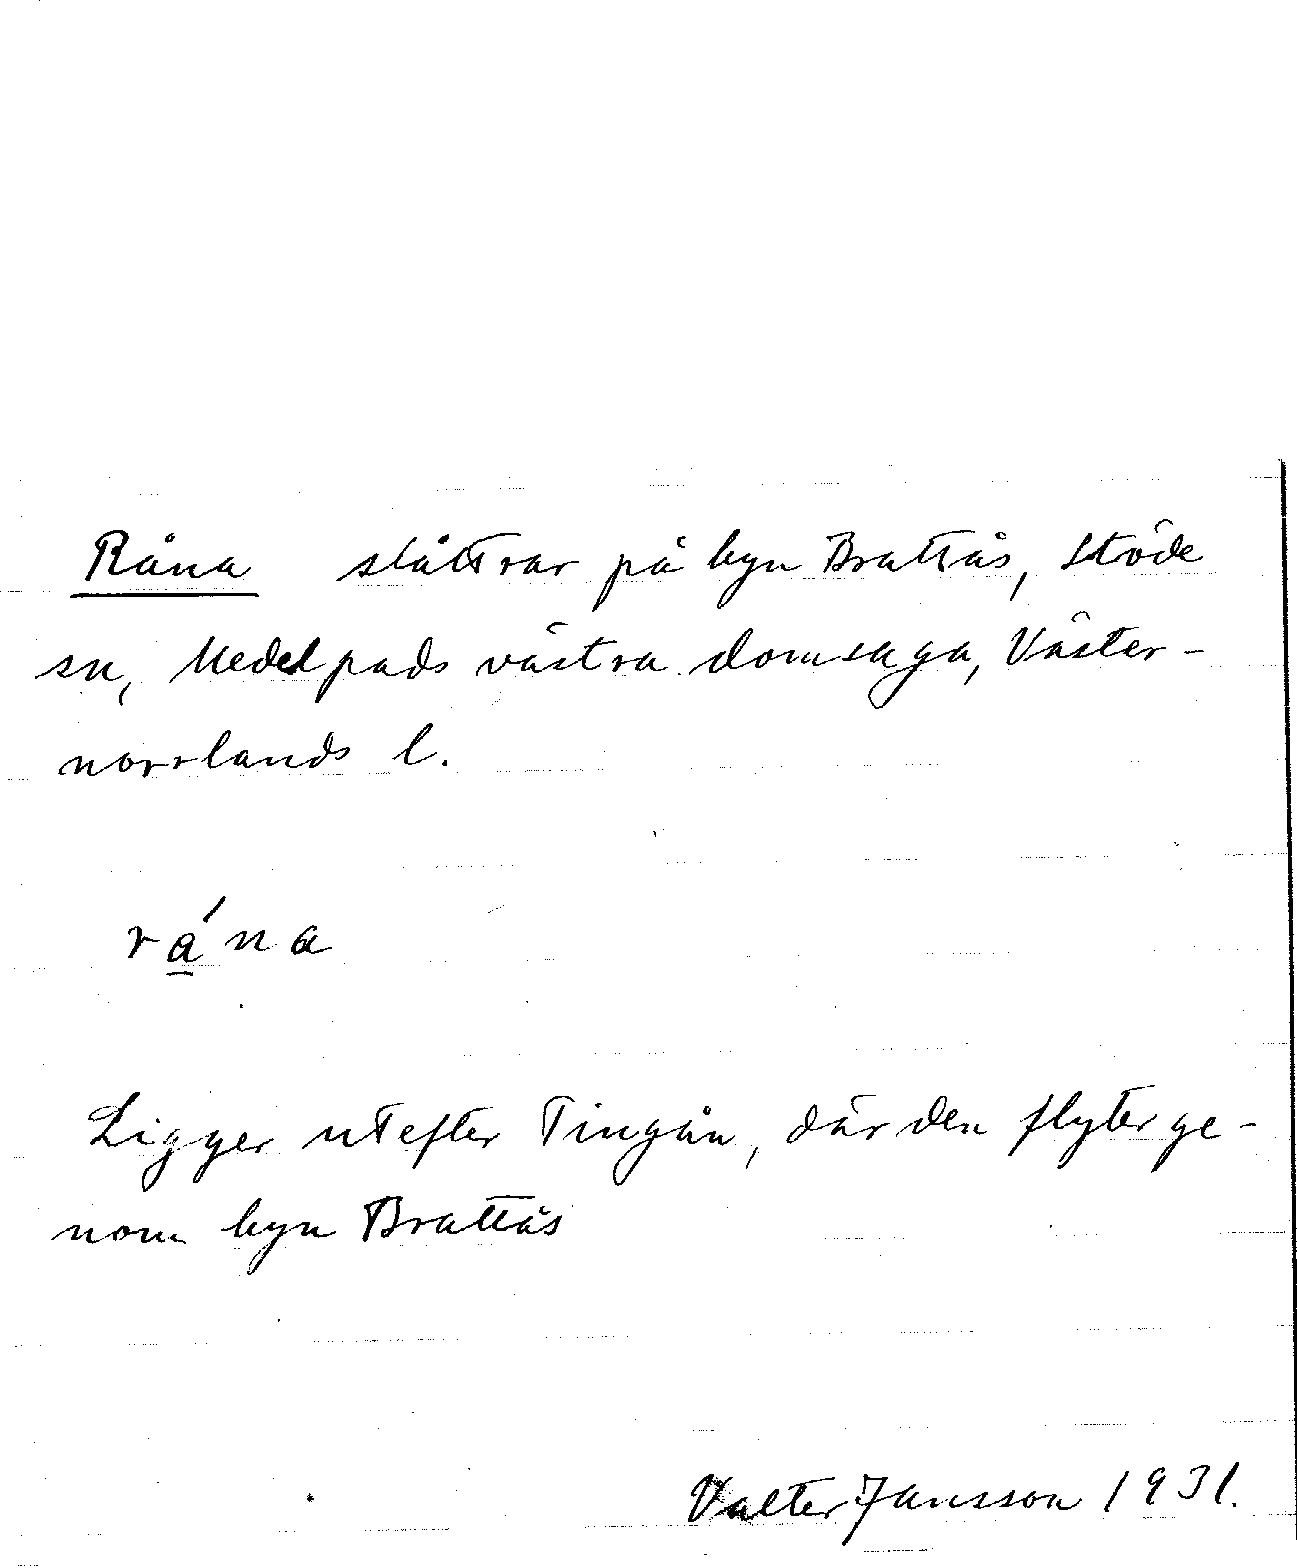 Råna slåttrar på byn Brattås, Stöde
sn, Medelpads västra domsaga, Väster-
norrlands l.
rána
Ligger utefter Tingån, där den flyter ge-
nom byn Brattås
Valter Jansson 1931.